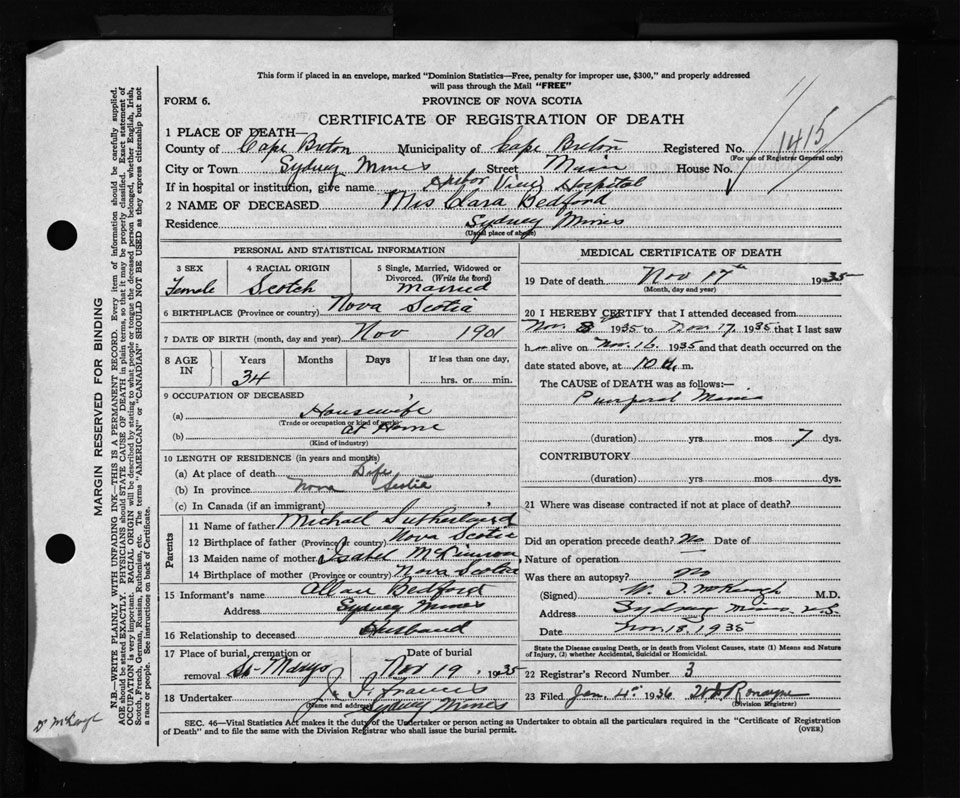 This form if placed in an envelope, marked "Dominion Statistics—Free, penalty for improper use, $300," and properly addressed
will pass through the Mail "FREE"
FORM 6.
PROVINCE OF NOVA SCOTIA
CERTIFICATE OF REGISTRATION OF DEATH
1415
1 PLACE OF DEATH—
County of Cape Breton Municipality of Cape Breton Registered No.
(For use of Registrar General only)
City or Town Sydney Mines Street Main House No.
If in hospital or institution, give name View Hospital
2 NAME OF DECEASED Mrs Clara Bedford
Residence Sydney Mines
(Usual place of abode)
PERSONAL AND STATISTICAL INFORMATION
3 SEX Female
4 RACIAL ORIGIN Scotch
5 Single, Married, Widowed or Divorced. (Write the word) Married
6 BIRTHPLACE (Province or country) Nova Scotia
7 DATE OF BIRTH (month, day and year) Nov 1901
8 AGE IN Years 34 Months Days If less than one day, hrs. or min.
9 OCCUPATION OF DECEASED
(a) Housewife
(Trade or occupation or kind of work)
(b) at Home
(Kind of industry)
10 LENGTH OF RESIDENCE (in years and months)
(a) At place of death Life
(b) In province Nova Scotia
(c) In Canada (if an immigrant)
Parents
11 Name of father Michael Sutherland
12 Birthplace of father (Province or country) Nova Scotia
13 Maiden name of mother Isabel McKinnon
14 Birthplace of mother (Province or country) Nova Scotia
15 Informant's name Allan Bedford
Address Sydney Mines
16 Relationship to deceased Husband
17 Place of burial, cremation or removal St-Marys Date of burial Nov 19, 1935
18 Undertaker J. J. Francis
(Name and address) Sydney Mines
MEDICAL CERTIFICATE OF DEATH
19 Date of death Nov 17th 1935
(Month, day and year)
20 I HEREBY CERTIFY that I attended deceased from
Nov. 8 1935 to Nov. 17 1935 that I last saw
h alive on Nov. 16 1935 and that death occurred on the
date stated above, at 10 m.
The CAUSE of DEATH was as follows:—
Puerperal Mania
(duration) yrs mos 7 dys.
CONTRIBUTORY
(duration) yrs. mos. dys.
21 Where was disease contracted if not at place of death?
Did an operation precede death? No Date of
Nature of operation
Was there an autopsy? No
(Signed) M.D.
Address Sydney Mines N.S.
Date Nov. 18, 1935
State the Disease causing Death, or in death from Violent Causes, state (1) Means and Nature of Injury, (2) whether Accidental, Suicidal or Homicidal.
22 Registrar's Record Number 3
23 Filed Jan. 4th 1936
(Division Registrar)
SEC. 46—Vital Statistics Act makes it the duty of the Undertaker or person acting as Undertaker to obtain all the particulars required in the "Certificate of Registration
of Death" and to file the same with the Division Registrar who shall issue the burial permit.
(OVER)
MARGIN RESERVED FOR BINDING
N.B.—WRITE PLAINLY WITH UNFADING INK—THIS IS A PERMANENT RECORD. Every item of information should be carefully supplied.
AGE should be stated EXACTLY. PHYSICIANS should STATE CAUSE OF DEATH in plain terms, so that it may be properly classified. Exact statement of
OCCUPATION is very important. RACIAL ORIGIN will be described by stating to what people or tongue the deceased person belonged, whether English, Irish,
Scotch, French, German, Russian, Ruthenian, etc. The terms "AMERICAN" or "CANADIAN" SHOULD NOT BE USED as they express citizenship but not
a race or people. See instructions on back of Certificate.
Dr McKeough